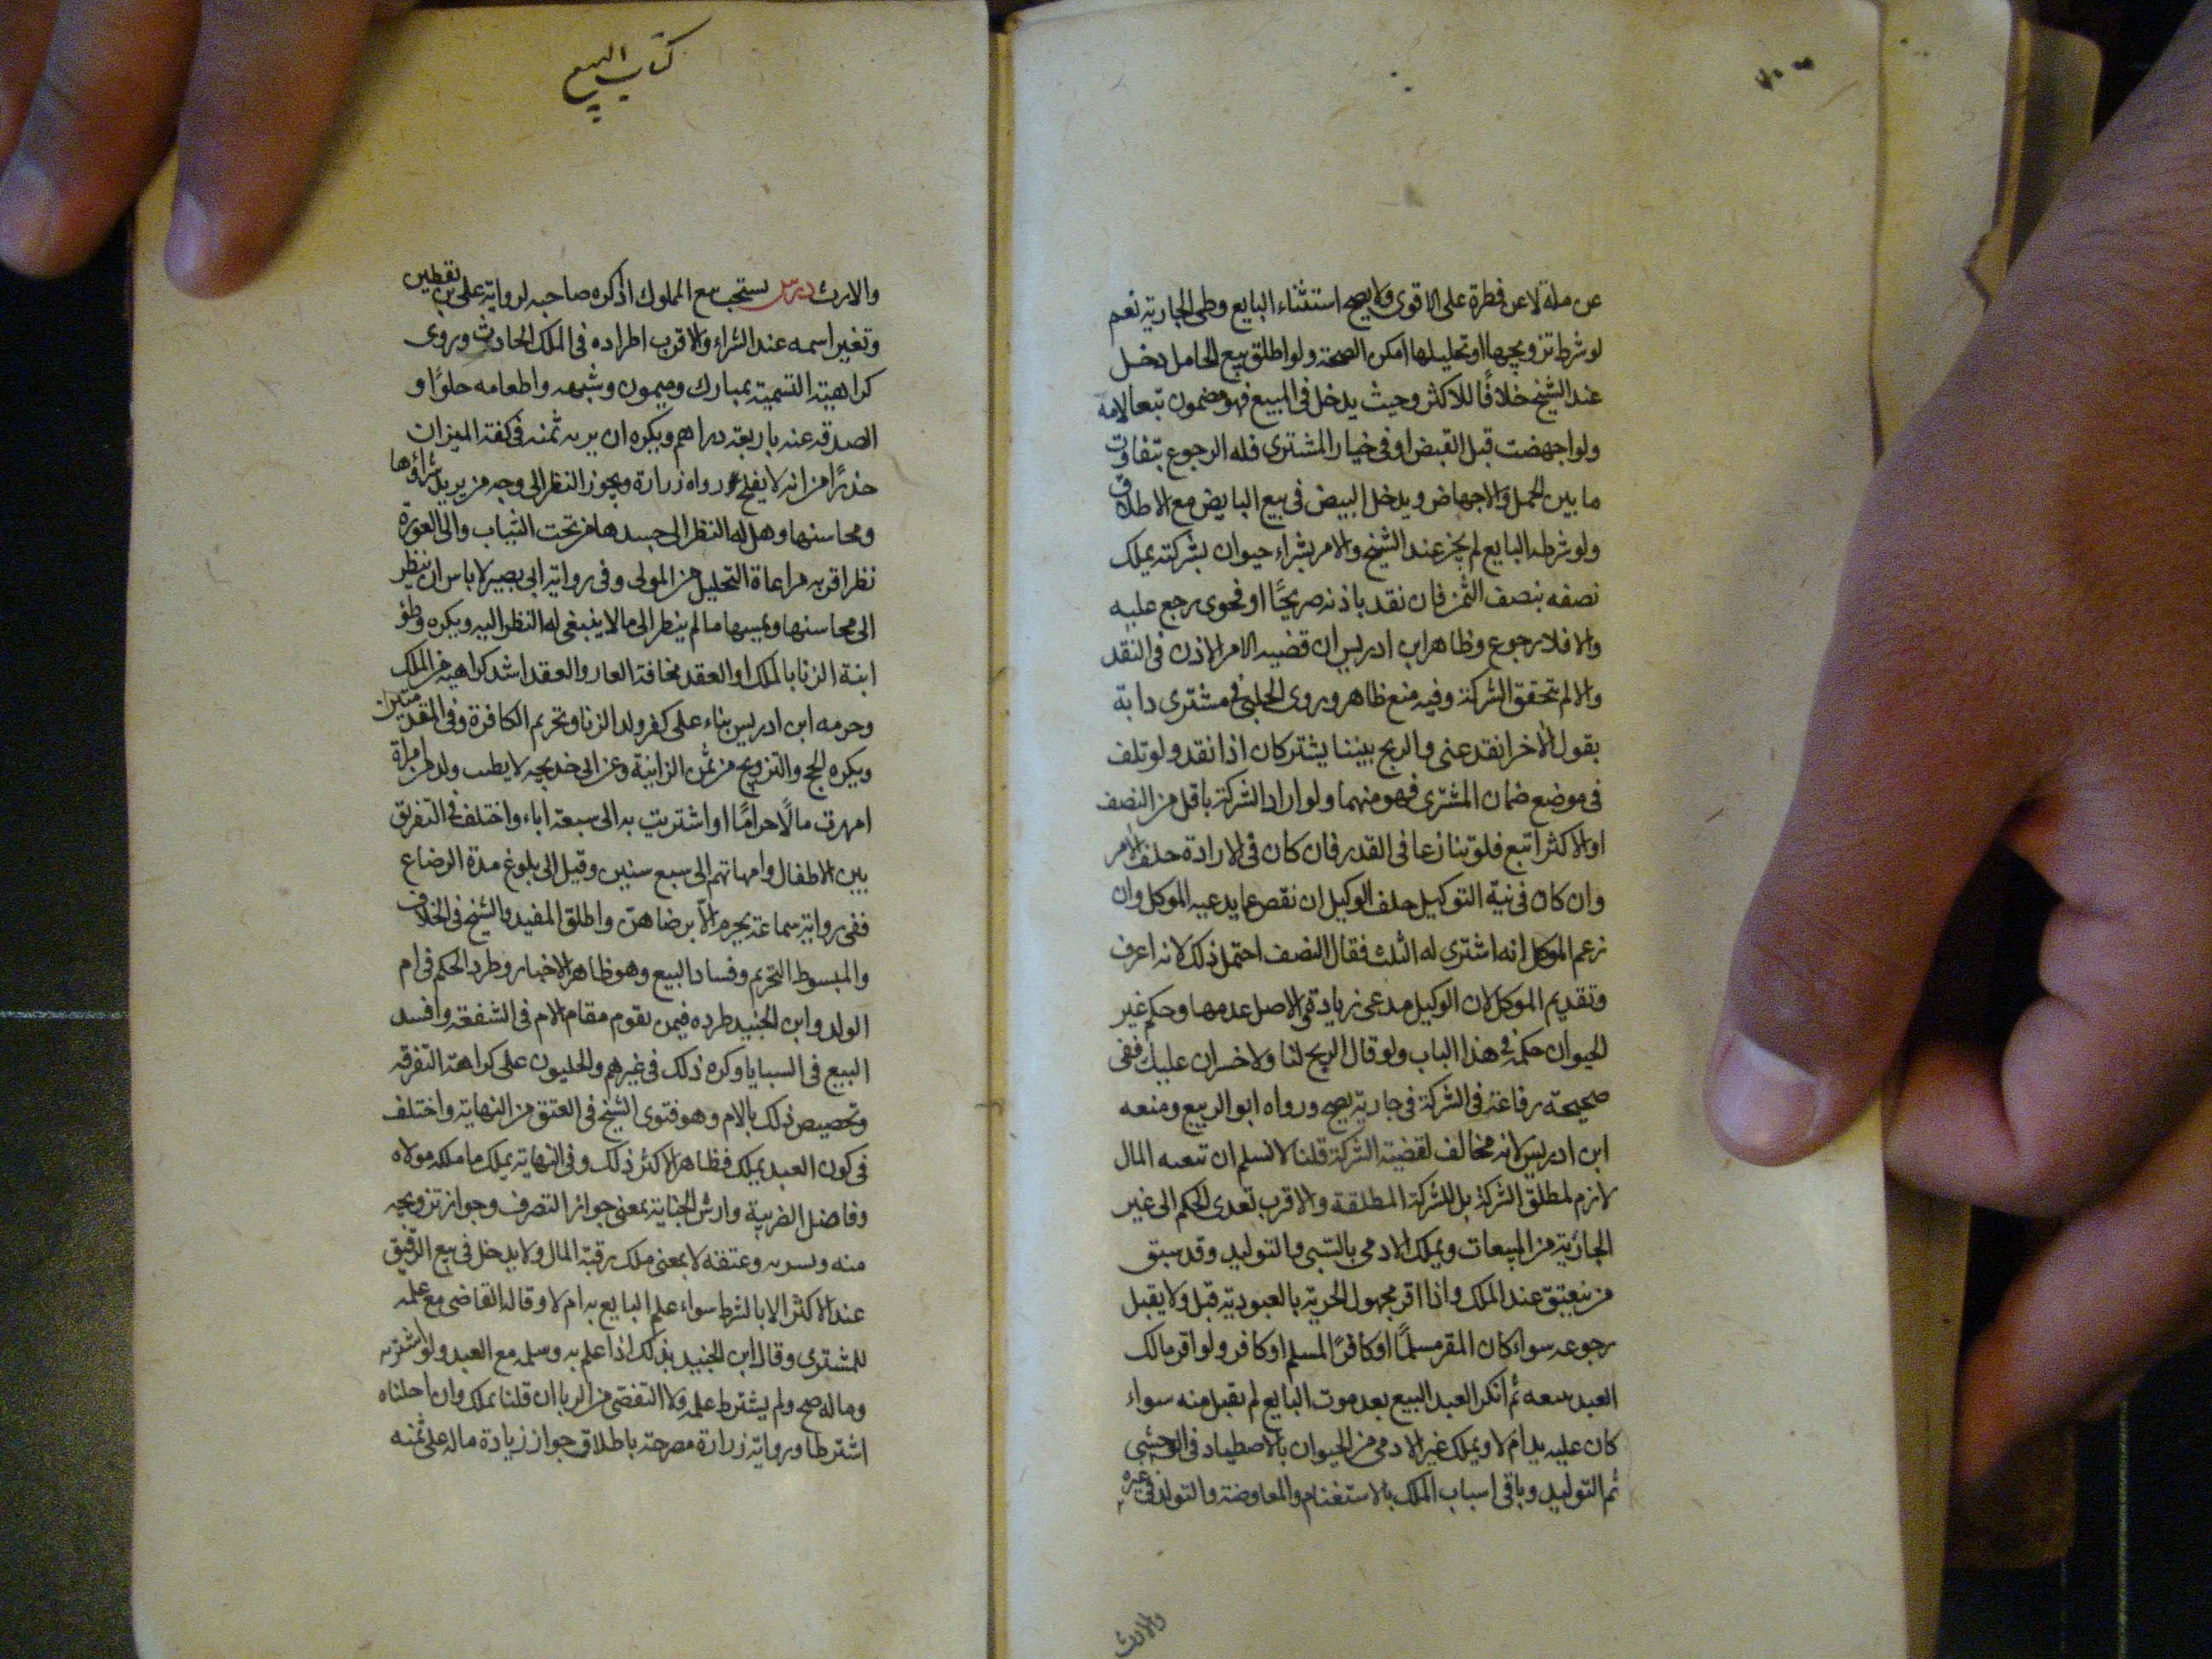 عن ملة لا عن فطرة على الاقوى ولا يصح استثناء البايع وطى الجارية نعم
لو شرط تزويجها او تحليلها امكن الصحة ولو اطلق بيع الحامل دخل
عند الشيخ خلافًا للاكثر وحيث يدخل فى المبيع فهو مضمون تبعا لامه
ولو اجهضت قبل القبض او فى خيار المشترى فله الرجوع بتفاوت
ما بين الحمل والاجهاض ويدخل البيض فى بيع البايض مع الاطلاق
ولو شرطه البايع لم يجز عند الشيخ والامر بشراء حيوان بشركته يملك
نصفه بنصف الثمن فان نقد باذنه صريحًا او فحوى رجع عليه
والا فلا رجوع وظاهر ابن ادريس ان قضيه الامر الاذن فى النقد
والا لم تحقق الشركة وفيه منع ظاهر وروى الحلبى فى مشترى دابة
يقول لاخر انقد عنى والربح بيننا يشتركان اذا نقد ولو تلف
فى موضع ضمان المشترى فهو منهما ولو اراد الشركة باقل من النصف
او الاكثر اتبع فلو تنازعا فى القدر فان كان فى الارادة حلف الامر
وان كان فى نية التوكيل حلف الوكيل ان نقص عما يدعيه الموكل وان
زعم الموكل انه اشترى له الثلث فقال النصف احتمل ذلك لانه اعرف
وتقديم الموكل لان الوكيل مدعى زيادة والاصل عدمها وحكم غير
الحيوان حكمه فى هذا الباب ولو قال الربح لنا ولا خسران عليك ففى
صحيحة رفاعة فى الشركة فى جارية يصح ورواه ابو الربيع ومنعه
ابن ادريس لانه مخالف لقضية الشركة قلنا لا نسلم ان تبعيه المال
لازم لمطلق الشركة بل للشركة المطلقة والاقرب تعدى الحكم الى غير
الجارية من المبيعات ويملك الادمى بالسبى والتوليد وقد سبق
من ينعتق عند الملك واذا اقر مجهول الحرية بالعبودية قبل ولا يقبل
رجوعه سواء كان المقر مسلمًا او كافرًا لمسلم او كافر ولو اقر مالك
العبد ببيعه ثم انكر العبد البيع بعد موت البايع لم يقبل منه سواء
كان عليه يد ام لا ويملك غير الادمى من الحيوان بالاصطياد فى الوحشى
ثم التوليد وباقى اسباب الملك بالاستغنام والمعاوضة والتولد فى غيره
والارث
كتاب البيع
والارث درس يستحب بيع المملوك اذ اكره صاحبه لرواية على بن يقطين
وتغيير اسمه عند الشراء والاقرب اطراده فى الملك الحادث وروى
كراهية التسمية بمبارك وميمون وشبهه واطعامه حلوًا و
الصدقه عنه باربعة دراهم ويكره ان يريه ثمنه فى كفة الميزان
حذرًا من انه لا يفلح رواه زرارة ويجوز النظر الى وجه من يريد شراؤها
ومحاسنها وهل له النظر الى جسدها من تحت الثياب والى العورة
نظر اقربه مراعاة التحليل من المولى وفى رواية ابى بصير لا باس ان ينظر
الى محاسنها ويمسها ما لم ينظر الى ما لا ينبغى له النظر اليه ويكره وطؤ
ابنة الزنا بالملك او العقد مخافة العار والعقد اشد كراهية من الملك
وحرمه ابن ادريس بناء على كفر ولد الزنا وتحريم الكافرة وفى المقدمتين
ويكره الحج والتزويج من ثمن الزانية وعن ابى خديجه لا يطيب ولد من امراة
امهرت مالًا حرامًا او اشتريت به الى سبعة اباء واختلف فى التفريق
بين الاطفال وامهاتهم الى سبع سنين وقيل الى بلوغ مدة الرضاع
ففى رواية سماعة يحرم الا برضاهن واطلق المفيد والشيخ فى الخلاف
والمبسوط التحريم وفساد البيع وهو ظاهر الاخبار وطرد الحكم فى ام
الولد وابن الجنيد طرده فيمن يقوم مقام الام فى الشفقة وافسد
البيع فى السبايا وكره ذلك فى غيرهم والحليون على كراهة التفرقه
وتخصيص ذلك بالام وهو فتوى الشيخ فى العتق من النهاية واختلف
فى كون العبد يملك فظاهر الاكثر ذلك وفى النهاية يملك ما ملكه مولاه
وفاضل الضريبة وارش الجناية بمعنى جواز التصرف وجواز تزويجه
منه وتسريه وعتقه لا بمعنى ملك رقبة المال ولا يدخل فى بيع الرقيق
عند الاكثر الا بالشرط سواء علم البايع به ام لا وقال القاضى مع علمه
للمشترى وقال ابن الجنيد بذلك اذا علم به وسلمه مع العبد ولو اشتراه
وماله صح ولم يشترط علمه ولا التفصى من الربا ان قلنا يملك وان احلناه
اشترطا ورواية زرارة مصرحة باطلاق جواز زيادة ماله على ثمنه